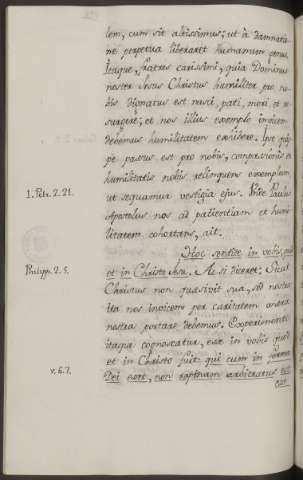 lem, cum sit altissimus; ut à damnatio
ne perpetua liberaret humanum genus.
Itaque, fratres carissimi, quia Dominus
noster Iesus Christus humiliter pro no
bis dignatus est nasci, pati, mori, et re
surgere; et nos illius exemplo invicem
debemus humilitatem exhibere. Ipse quip
pe passus est pro nobis, compassionis et
humilitatis nobis relinquens exemplum,
1. Petr. 2. 21.
ut sequamur vestigia ejus. Paulus
Apostolus nos ad patientiam et humi
litatem cohortans, ait.
Philipp. 2. 5.
Hoc sentite in vobis, quod
et in Christo Iesu. Ac si diceret; Sicut
Christus non quaesivit sua, sed nostra
ita nos invicem per caritatem onera
nostra portare debemus. Experimento
itaque cognoscatur, esse in vobis quod
et in Christo fuit,
v. 6. 7.
qui cum in forma
Dei esset, non rapinam arbitratus est